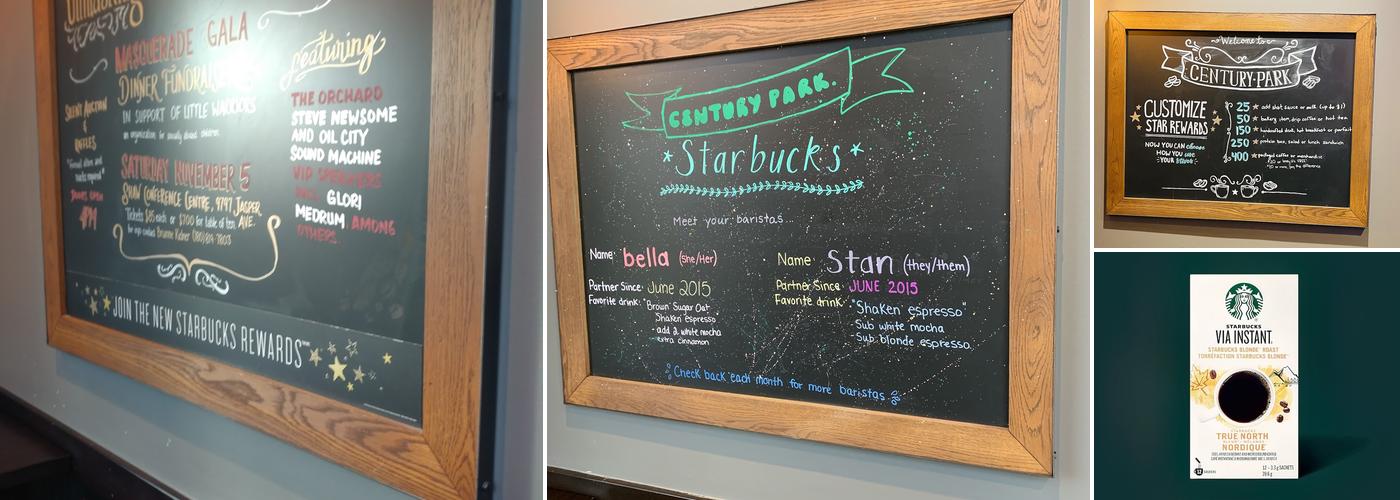 MASQUERADE GALA
DINNER FUNDRAISER
IN SUPPORT OF LITTLE WARRIORS
SILENT AUCTION
&
RAFFLES
DOORS OPEN
SATURDAY NOVEMBER 5
SHAW CONFERENCE CENTRE, 9797 JASPER AVE.
Tickets $85 each or $700 for table of ten
Featuring
THE ORCHARD
STEVE NEWSOME
AND OIL CITY
SOUND MACHINE
VIP SPEAKERS
INCL. GLORI
MEDRUM, AMONG
OTHERS.
JOIN THE NEW STARBUCKS REWARDS™
CENTURY PARK.
Starbucks
Meet your baristas...
Name: bella (she/Her)
Partner Since: June 2015
Favorite drink: "Brown Sugar Oat
Shaken espresso
- add 2 white mocha
extra cinnamon
Name: Stan (they/them)
Partner Since: JUNE 2015
Favorite drink: "Shaken espresso"
Sub white mocha
Sub blonde espresso
Check back each month for more baristas
Welcome to
CENTURY·PARK
CUSTOMIZE
STAR REWARDS
NOW YOU CAN choose
HOW YOU use
YOUR
25 add shot, sauce or milk (up to $1)
50 bakery item, drip coffee or hot tea
150 handcrafted drink, hot breakfast or parfait
250 protein box, salad or lunch sandwich
400 packaged coffee or merchandise
STARBUCKS
VIA INSTANT
STARBUCKS BLONDE ROAST
TORRÉFACTION STARBUCKS BLONDE
STARBUCKS
TRUE NORTH
BLEND · MÉLANGE
NORDIQUE
12 - 3.3 g SACHETS
39.6 g